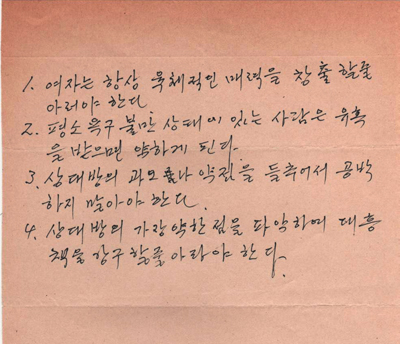 1. 여자는 항상 육체적인 매력을 창출할줄
아러야 한다.
2. 평소 욕구 불만 상태에 있는 사람은 유혹
을 받으면 약하게 된다.
3. 상대방의 과오나 약점을 들추어서 공박
하지 말아야 한다.
4. 상대방의 가장약한점을 파악하며 대응
책을 강구 할줄아라야 한다.